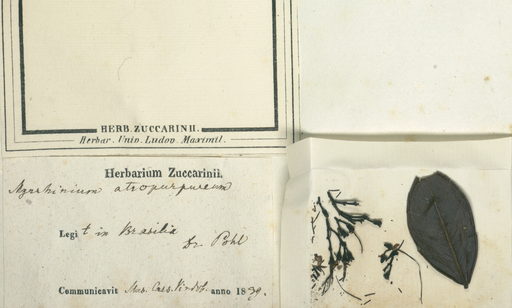 HERB. ZUCCARINII.
Herbar. Univ. Ludov. Maximil.
Herbarium Zuccarinii.
Myrrhinium atropurpureum
Legit in Brasilia
Dr. Pohl
Communicavit Mus. Caes. Vindob. anno 1839.